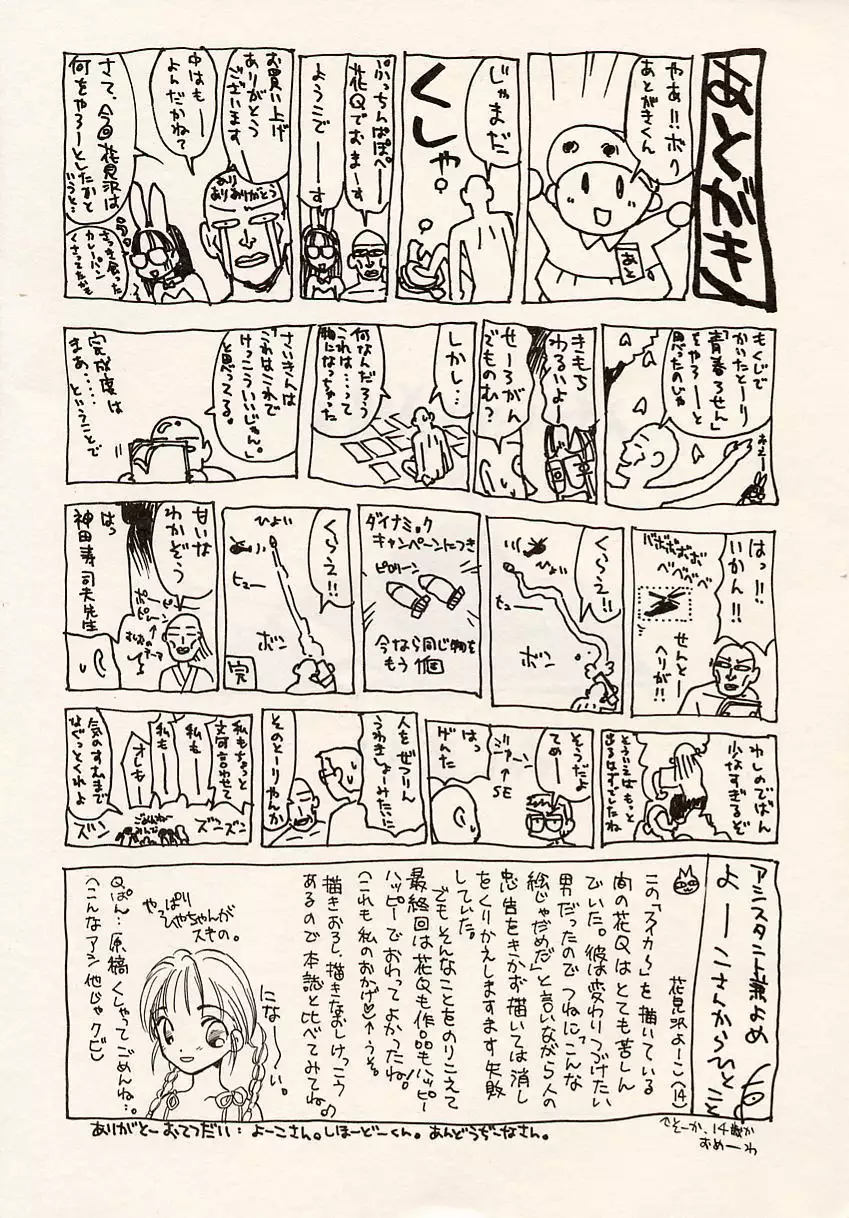 あとがき
やぁ!!ボク
あとがきくん
あと
じゃまだ
くしゃ
ぷっちんぱぽぺー
花Qでおまーす
ようこでーーす
お買い上げ
ありがとう
ございます
あり
ありありがとう
中はもー
よんだかね?
さて、今回花見沢は
何をやろーとしたかと
いうと…
さっき食った
カレーパン
くさってたぞ
もくじで
かいたとーり
「青春ろせん」
をやろーと
思ったのじゃ
おえー
きもち
わるいよー
せーろがん
でものむ?
しかし…
何なんだろう
これは…って
物になっちゃった
さいきんは
「これはこれで
けっこういいじゃん。」
と思ってくる。
完成度は
まあ……
ということで
はっ!!
いかん!!
バボボボボ
ベベベベ
せんとー
ヘリが!!
くらえ!!
ひょい
ヒュー
ボン
ダイナミック
キャンペーンにつき
ピローン
今なら同じ物を
もう1個
くらえ!!
ひょい
ヒュー
ボン
完
甘いな
わかぞう
ポーピーン
ポピレーン
はっ
神田寿司夫先生
わしのでばん
少なすぎるぞ
そういえばもっと
あるはずでしたね
そうだよ
てめー
ジャーン
↑
SE
はっ
げんた
人をぜつりん
うわきしょーみたいに
そのとーりやんか
私もちょっと
文句言わせて
私も
私も
オレもー
気のすむまで
なぐっとくれよ
ズン
ズンズン
アシスタント兼よめ
よーーこさんからひとこと
花見沢よーこ(14)
この「スイカ〜」を描いている
間の花Qはとても苦しん
でいた。彼は変わりつづけたい
男だったのでつねに「こんな
絵じゃだめだ」と言いながら人の
忠告をきかず描いては消し
をくりかえしますます失敗
していた。
でもそんなことをのりこえて
最終回は花Qも作品もハッピー
ハッピーでおわってよかったね!
(これも私のおかげ♡)↑うそ。
描きおろし、描きなおしけっこう
あるので本誌と比べてみてね♪
になーーい。
やっぱり
ひやちゃんが
スキの。
Qぱん…原稿くしゃってごめんね…。
(こんなアシ他じゃクビ)
ありがとーおてつだい:よーこさん。しほーどーくん。あんどうぢーなさん。
そーか、14歳か
おめーわ